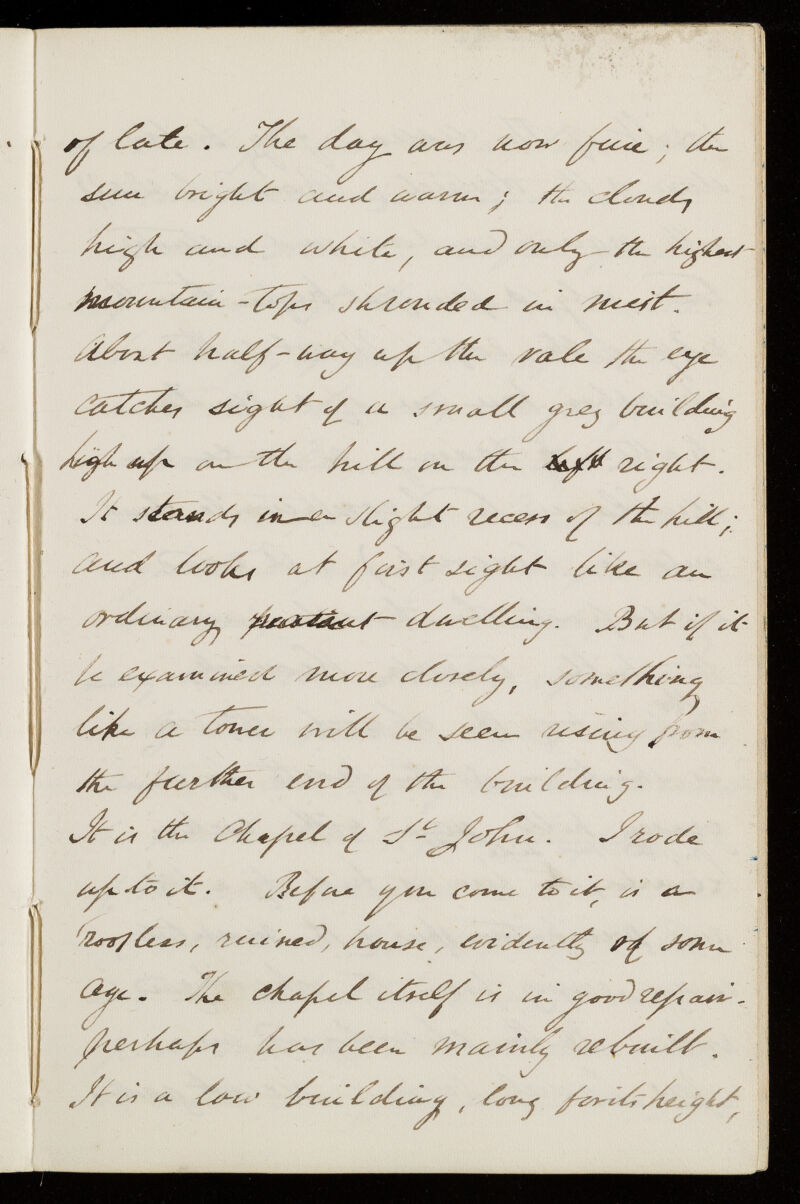 of late. The day was now fine; the
sun bright and warm; the clouds
high and white, and only the highest
mountain-tops shrouded in mist.
About half-way up the vale the eye
catches sight of a small grey building
high up on the hill on the left right.
It stands in a slight recess of the hill;
and looks at first sight like an
ordinary dwelling. But if it
be examined more closely, something
like a tower will be seen rising from
the further end of the building.
It is the Chapel of St John. I rode
up to it. Before you come to it, is a
roofless, ruined, house, evidently of some
age. The chapel itself is in good repair.
perhaps has been mainly rebuilt.
It is a low building, long for its height,